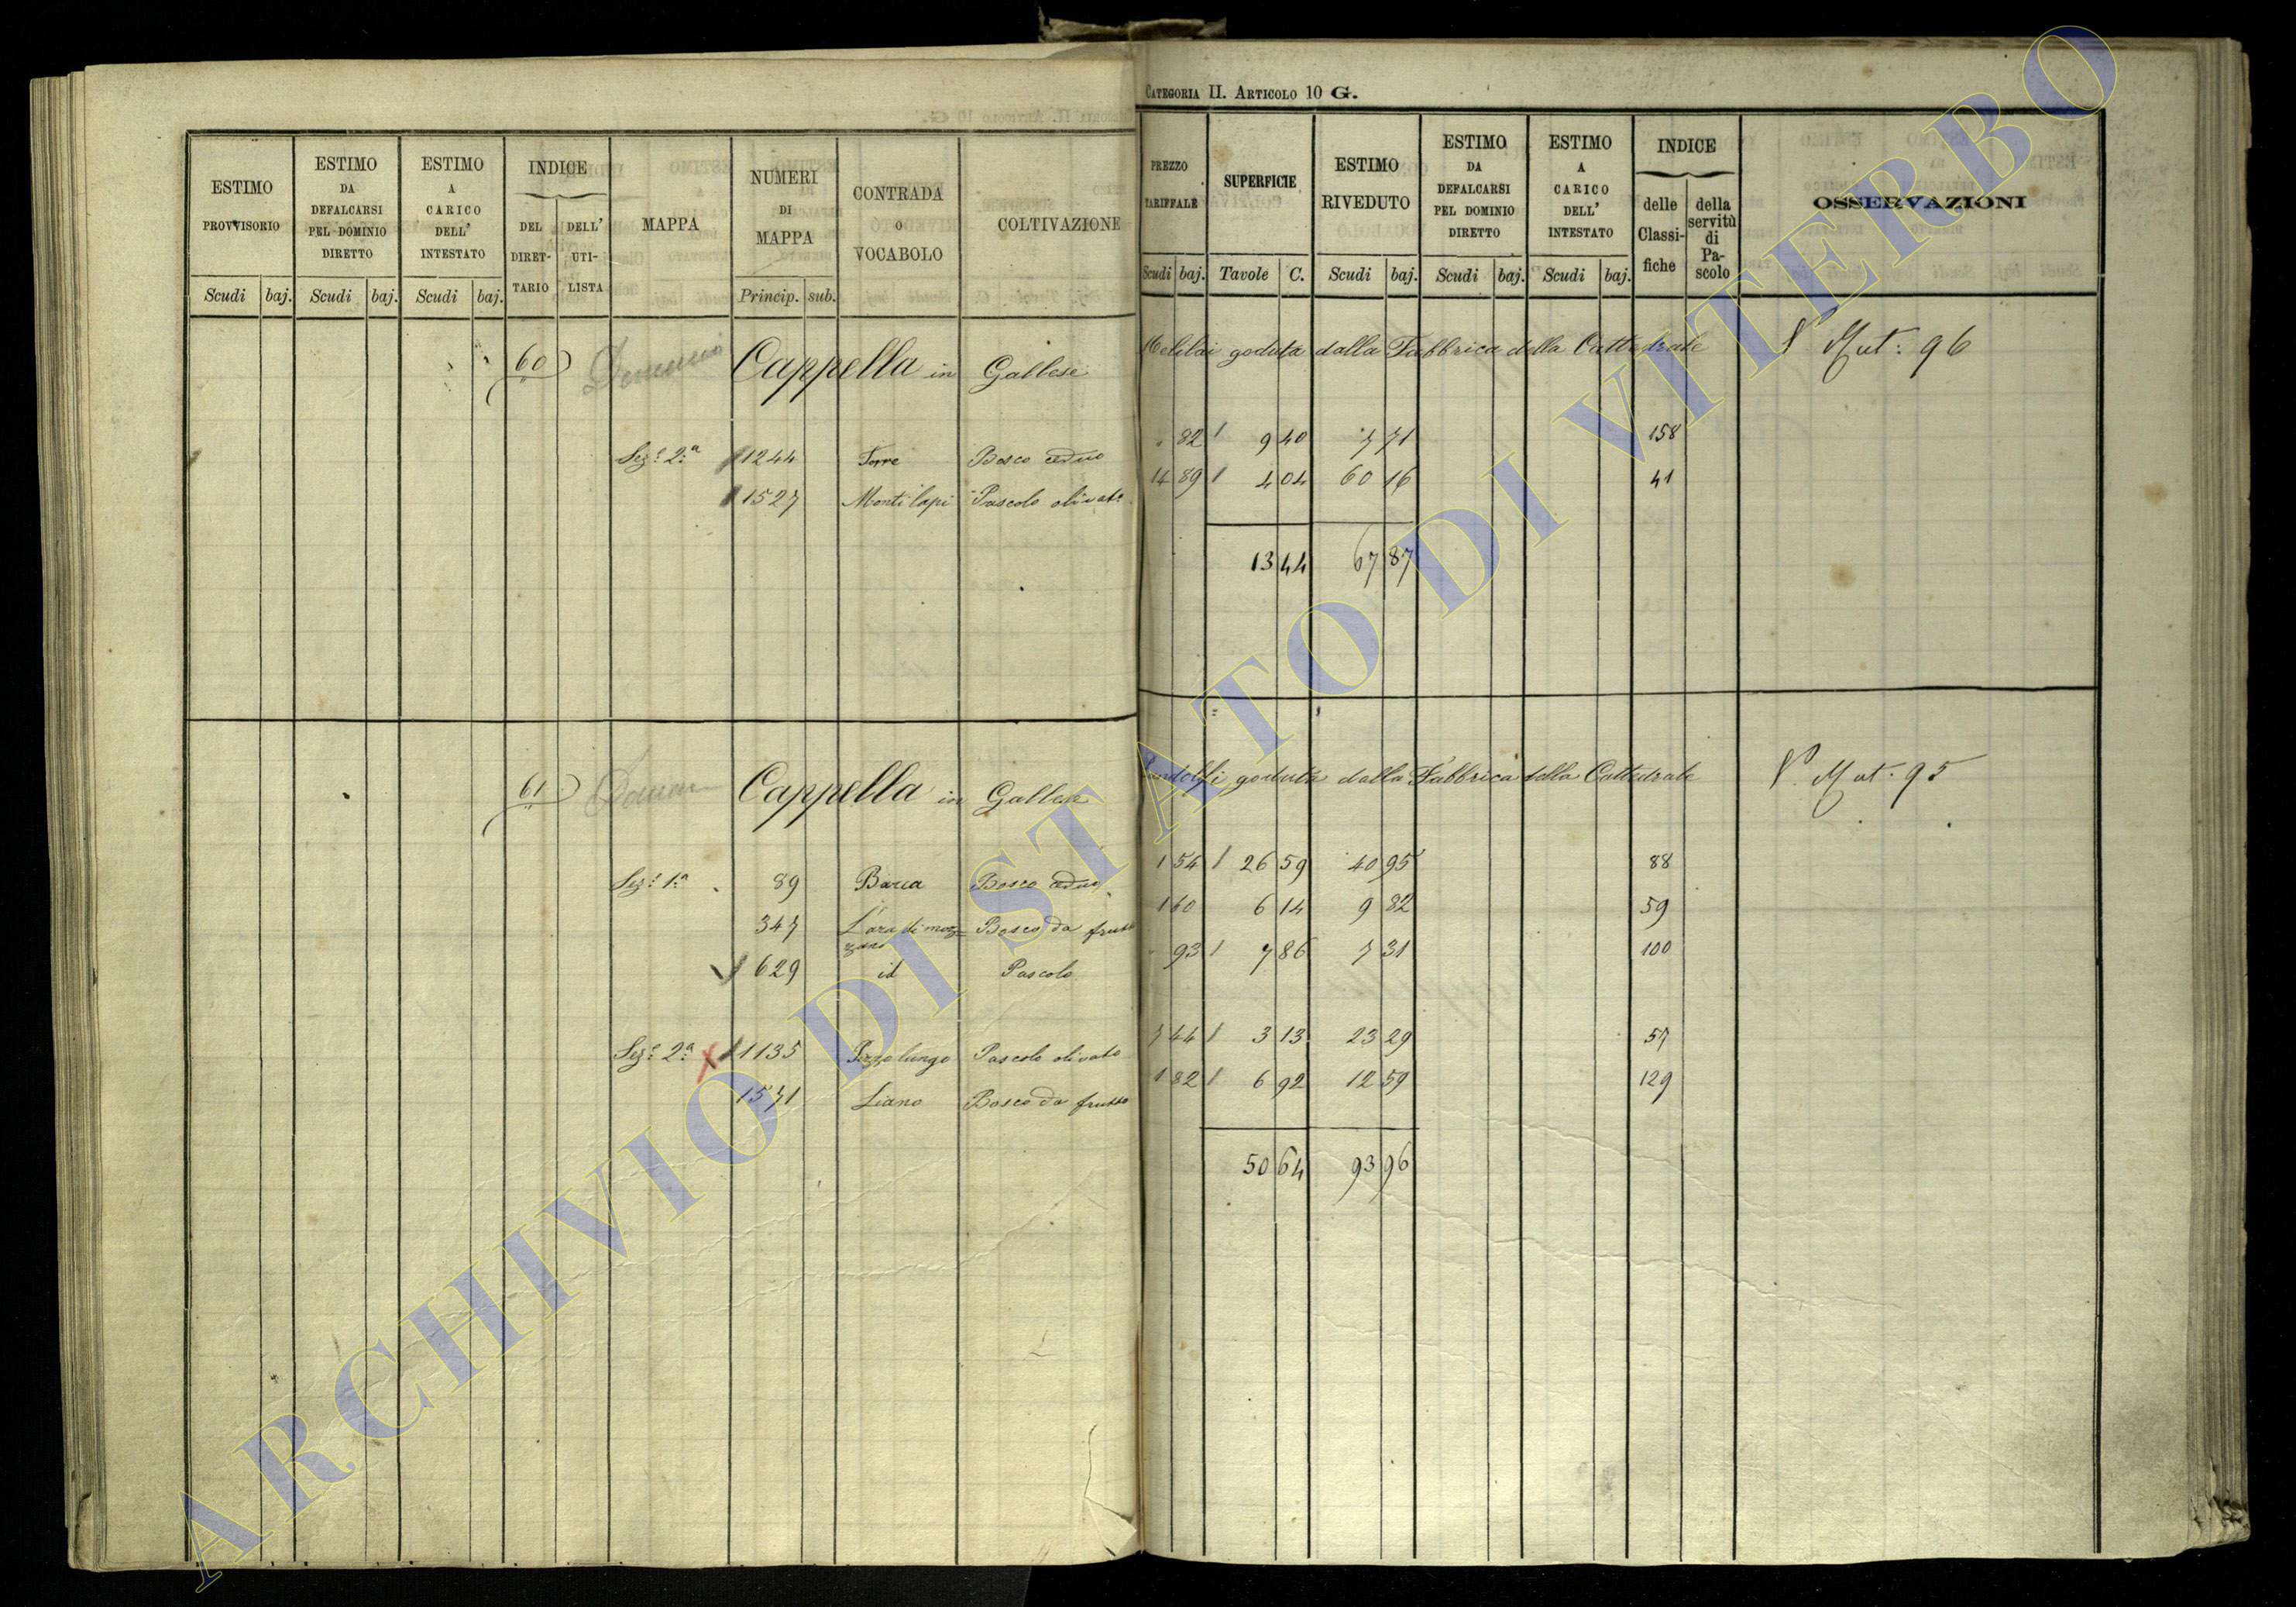 CATEGORIA II. ARTICOLO 10 G.
ESTIMO PROVVISORIO
ESTIMO DA DEFALCARSI PEL DOMINIO DIRETTO
ESTIMO A CARICO DELL' INTESTATO
INDICE
DEL DIRET-TARIO
DELL' UTI-LISTA
MAPPA
NUMERI DI MAPPA
CONTRADA O VOCABOLO
COLTIVAZIONE
PREZZO TARIFFALE
SUPERFICIE
ESTIMO RIVEDUTO
ESTIMO DA DEFALCARSI PEL DOMINIO DIRETTO
ESTIMO A CARICO DELL' INTESTATO
INDICE
delle Classi-fiche
della servitù di Pa-scolo
OSSERVAZIONI
Scudi baj. Scudi baj. Scudi baj. Princip. sub. Scudi baj. Tavole C. Scudi baj. Scudi baj. Scudi baj.
60 Cappella in Gallese goduta dalla Fabbrica della Cattedrale V. Mut: 96
Sez.e 2.a 1244 Torre Bosco ceduo 82 9 40 7 71 158
1527 Monti lapi Pascolo olivato 14 89 4 04 60 16 41
13 44 67 87
61 Cappella in Gallese goduta dalla Fabbrica della Cattedrale V. Mut. 95
Sez.e 1.a 89 Barca Bosco ceduo 1 54 26 59 40 95 88
347 Bosco da frutto 1 60 6 14 9 82 59
629 id Pascolo 93 7 86 7 31 100
Sez.e 2.a 1135 Pascolo olivato 7 44 3 13 23 29 57
1571 Liano Bosco da frutto 1 82 6 92 12 59 129
50 64 93 96
ARCHIVIO DI STATO DI VITERBO